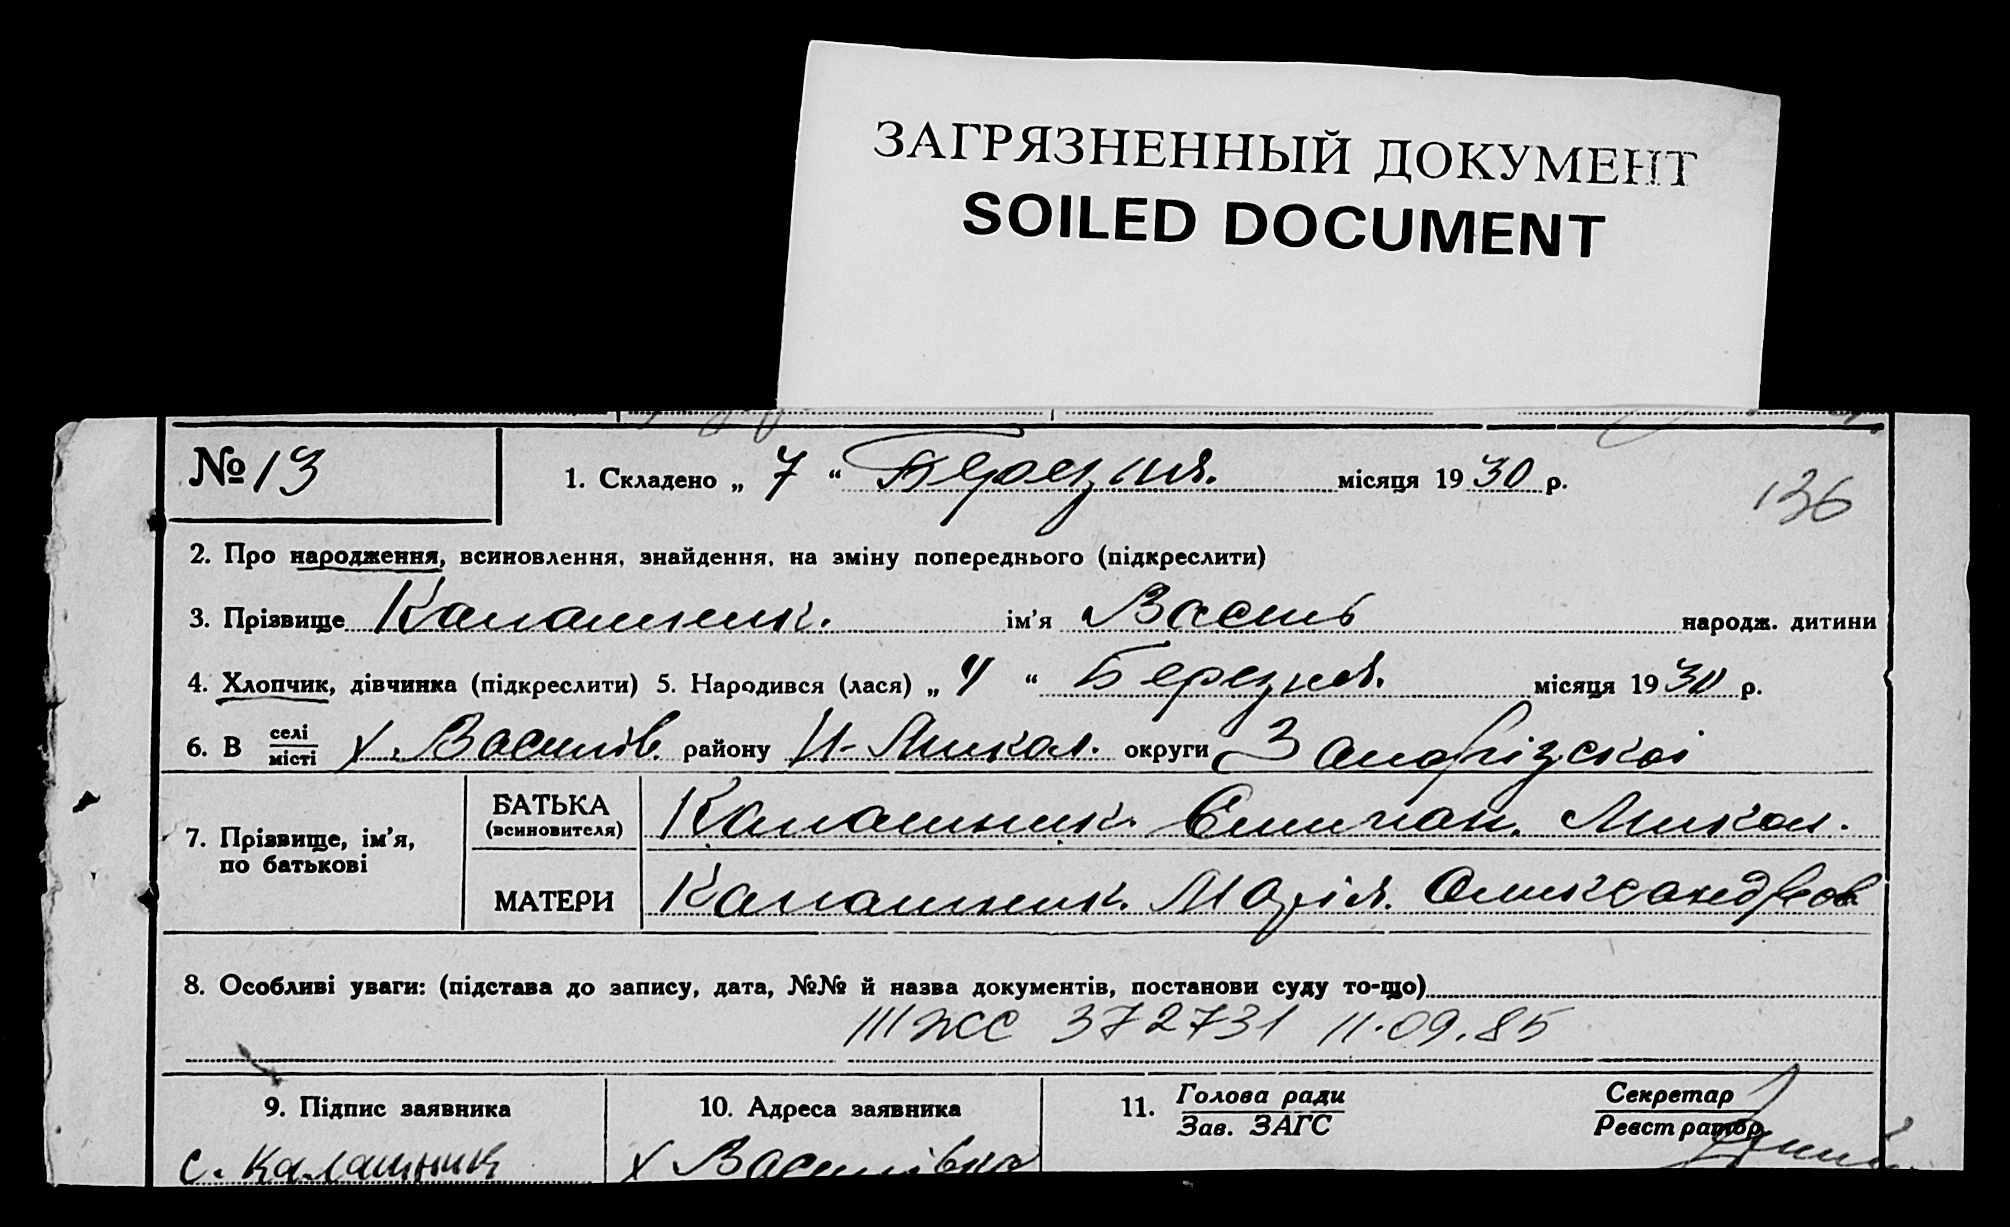 ЗАГРЯЗНЕННЫЙ ДОКУМЕНТ
SOILED DOCUMENT
№ 13
1. Складено „ 7 “ Березня. місяця 1930 р.
136
2. Про народження, всиновлення, знайдення, на зміну попереднього (підкреслити)
3. Прізвище Калашник. ім’я Василь народж. дитини
4. Хлопчик, дівчинка (підкреслити) 5. Народився (лася) „ “ Березня. місяця 1930 р.
6. В селі/місті х. Василів. району Н-Микол. округи Запорізскої
7. Прізвище, ім’я, по батькові
БАТЬКА (всиновителя) Калашник. Микол.
МАТЕРИ Калашник. Марія. Олександров.
8. Особливі уваги: (підстава до запису, дата, №№ й назва документів, постанови суду то-що)
III ЖС 372731 11.09.85
9. Підпис заявника 10. Адреса заявника 11. Голова ради/Зав. ЗАГС Секретар/Реєстратор
С. Калашник х Василівка